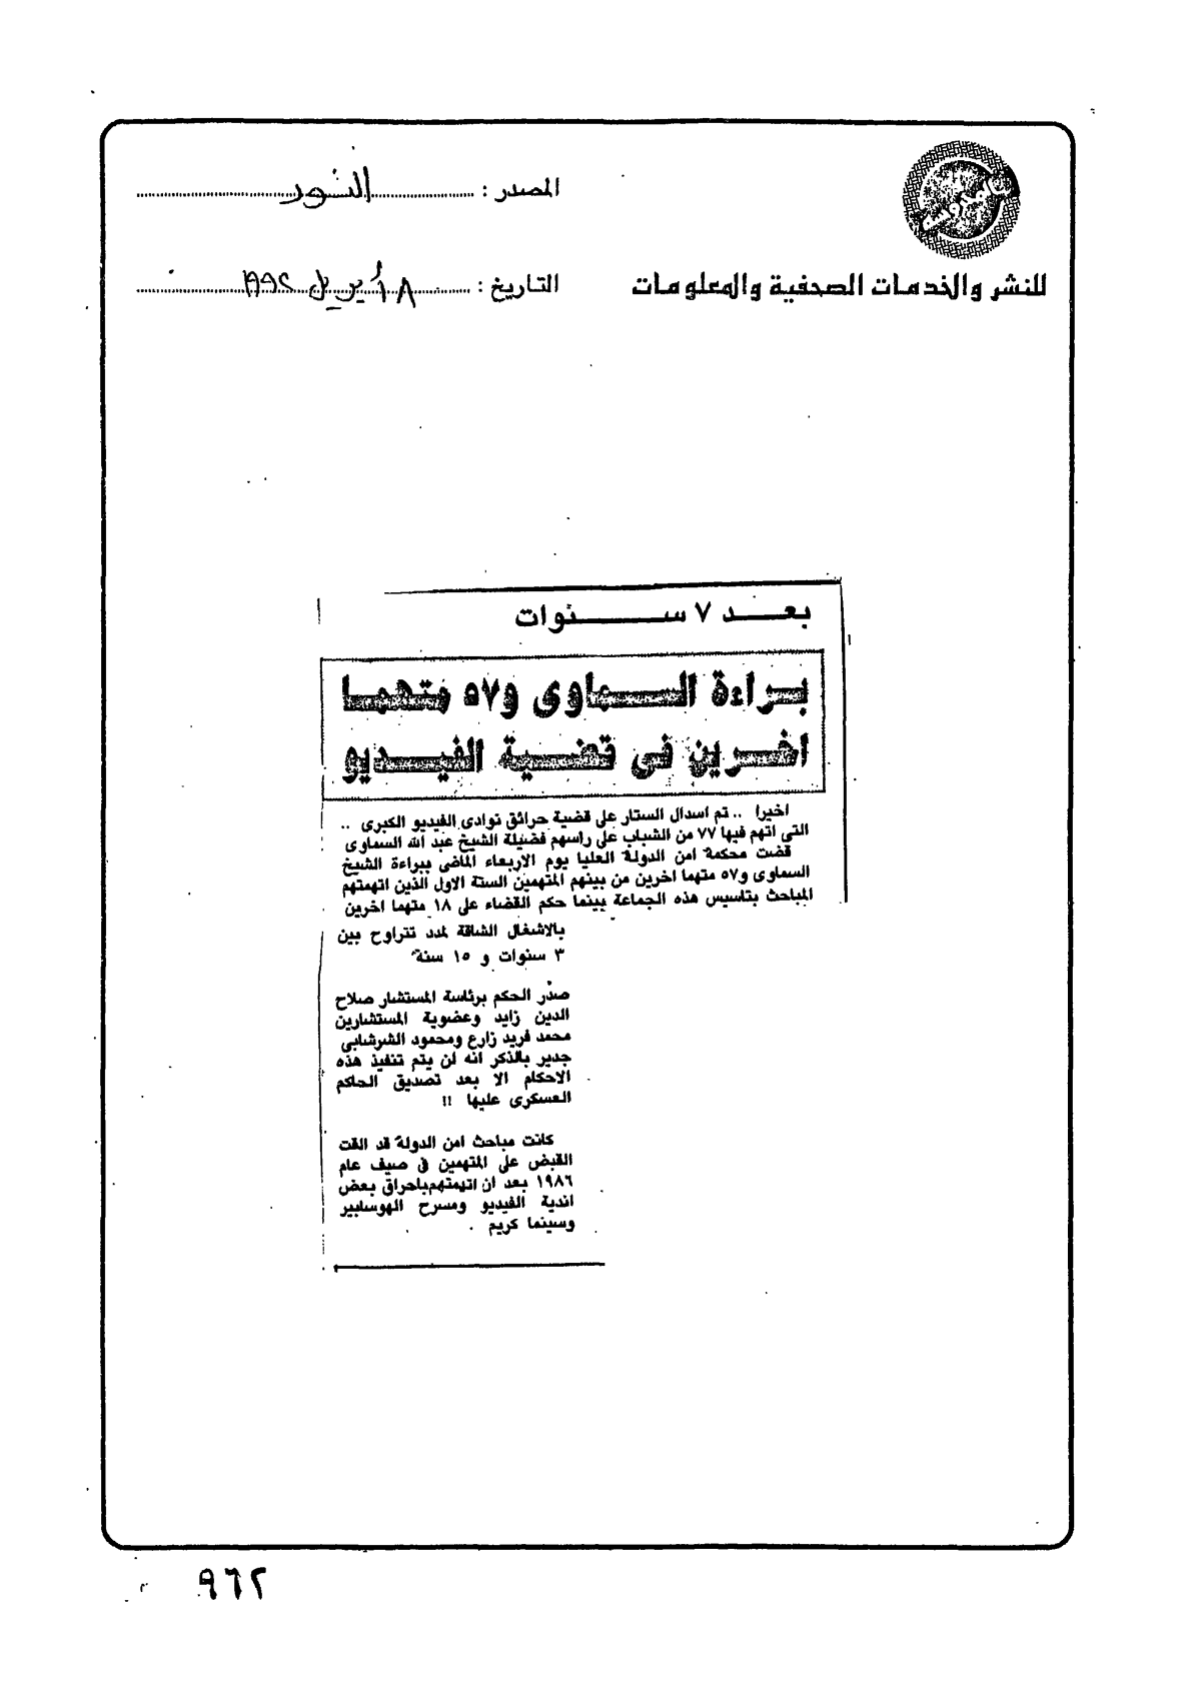 المحروسة
للنشر والخدمات الصحفية والمعلومات
المصدر : النور
التاريخ : ٨ أبريل ١٩٩٢
بعد ٧ سنوات
براءة السماوى و٥٧ متهما
اخرين فى قضية الفيديو
اخيرا .. تم اسدال الستار على قضية حرائق نوادى الفيديو الكبرى ..
التى اتهم فيها ٧٧ من الشباب على راسهم فضيلة الشيخ عبد الله السماوى
قضت محكمة امن الدولة العليا يوم الاربعاء الماضى ببراءة الشيخ
السماوى و٥٧ متهما اخرين من بينهم المتهمين الستة الاول الذين اتهمتهم
المباحث بتاسيس هذه الجماعة بينما حكم القضاء على ١٨ متهما اخرين
بالاشغال الشاقة لمدد تتراوح بين
٣ سنوات و ١٥ سنة
صدر الحكم برئاسة المستشار صلاح
الدين زايد وعضوية المستشارين
محمد فريد زارع ومحمود الشرشابى
جدير بالذكر انه لن يتم تنفيذ هذه
الاحكام الا بعد تصديق الحاكم
العسكرى عليها !!
كانت مباحث امن الدولة قد القت
القبض على المتهمين فى صيف عام
١٩٨٦ بعد ان اتهمتهم باحراق بعض
اندية الفيديو ومسرح الهوسابير
وسينما كريم .
٩٦٢